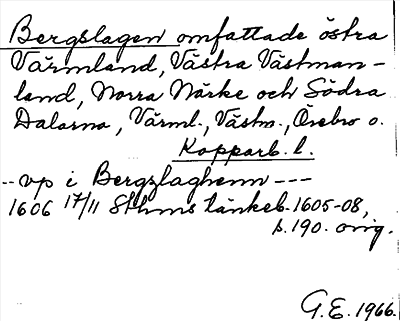 Bergslagen omfattade östra
Värmland, Västra Västman-
land, Norra Närke och Södra
Dalarna, Värml., Västm., Örebro o.
Kopparb. l.
-- vp i Bergzlaghenn ---
1606 17/11 Sthms tänkeb. 1605-08,
s. 190. orig.
G.E. 1966.